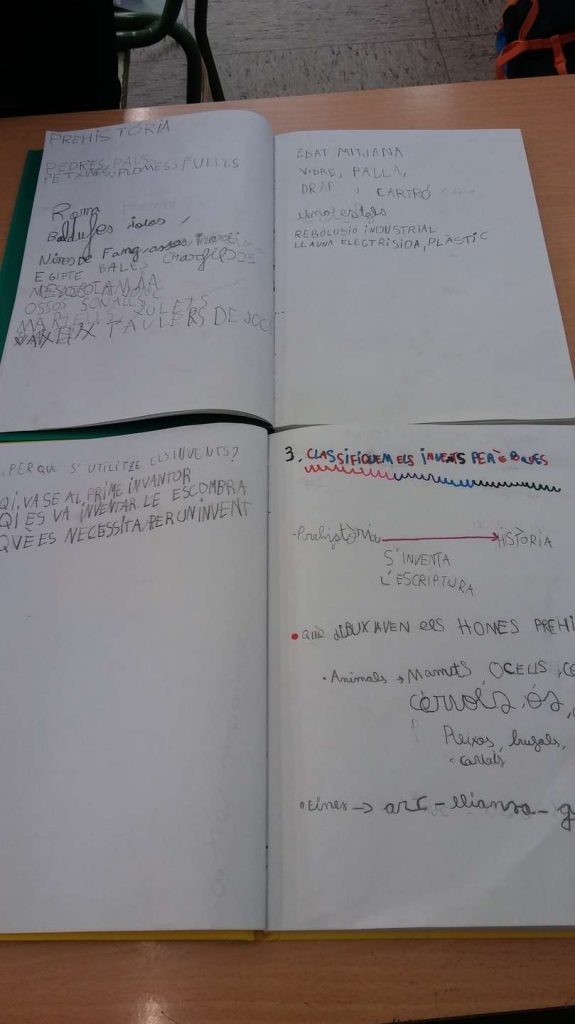 PREHISTÒRIA
PEDRES, PALS
PETALES, PLOMES, FULLES
Roma
Baldufes
Nines de Fang
EGIPTE BALES
MESOPOTAMIA
OSSOS SONALLS
MARTELLS, XULETS
TAULERS DE JOCS
EDAT MITJANA
VIDRE, PALLA,
DRAP, CARTRÓ
REBOLUSIO INDUSTRIAL
LLAUNA ELECTRISIDA, PLÀSTIC
. PER QUE S'UTILITZE ELS INVENTS?
QI. VA SE AL PRIME INVANTOR
QI ES VA INVENTAR LE ESCOMBRA
QUÈ ES NECESSITA PER UN INVENT
3. CLASSIFIQUEM ELS INVENTS PER ÈPOQUES
Prehistòria → HISTÒRIA
S'INVENTA
L'ESCRIPTURA
• QUÈ DIBUXAVEN ELS HONES PREHI
• Animals → Mamuts, OCELLS,
cèrvols, ós,
Peixos,
• Eines → arc - lliansa - g